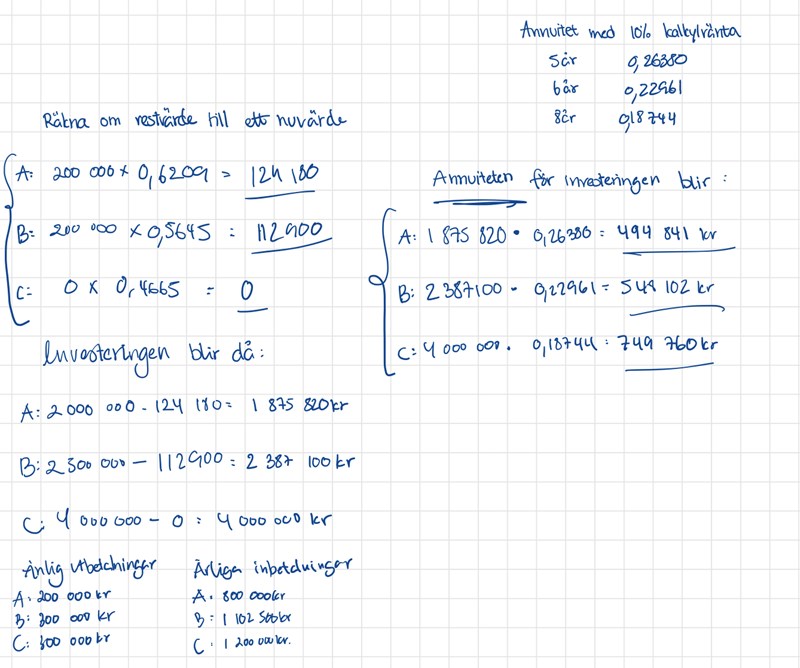 Annuitet med 10% kalkylränta
5år 0,26380
6år 0,22961
8år 0,18744
Räkna om restvärde till ett nuvärde
A: 200 000 x 0,6209 = 124 180
B: 200 000 x 0,5645 = 112900
C: 0 x 0,4665 = 0
Investeringen blir då:
A: 2 000 000 - 124 180 = 1 875 820kr
B: 2 500 000 - 112900 = 2 387 100 kr
C: 4 000 000 - 0 = 4 000 000 kr
Annuiteten för investeringen blir :
A: 1 875 820 • 0,26380 = 494 841 kr
B: 2 387100 • 0,22961 = 548 102 kr
C: 4 000 000 • 0,18744 = 749 760 kr
Årlig utbetalningar
A: 200 000 kr
B: 300 000 kr
C: 300 000 kr
Årliga inbetalningar
A: 800 000kr
B: 1 102 500kr
C: 1 200 000kr.